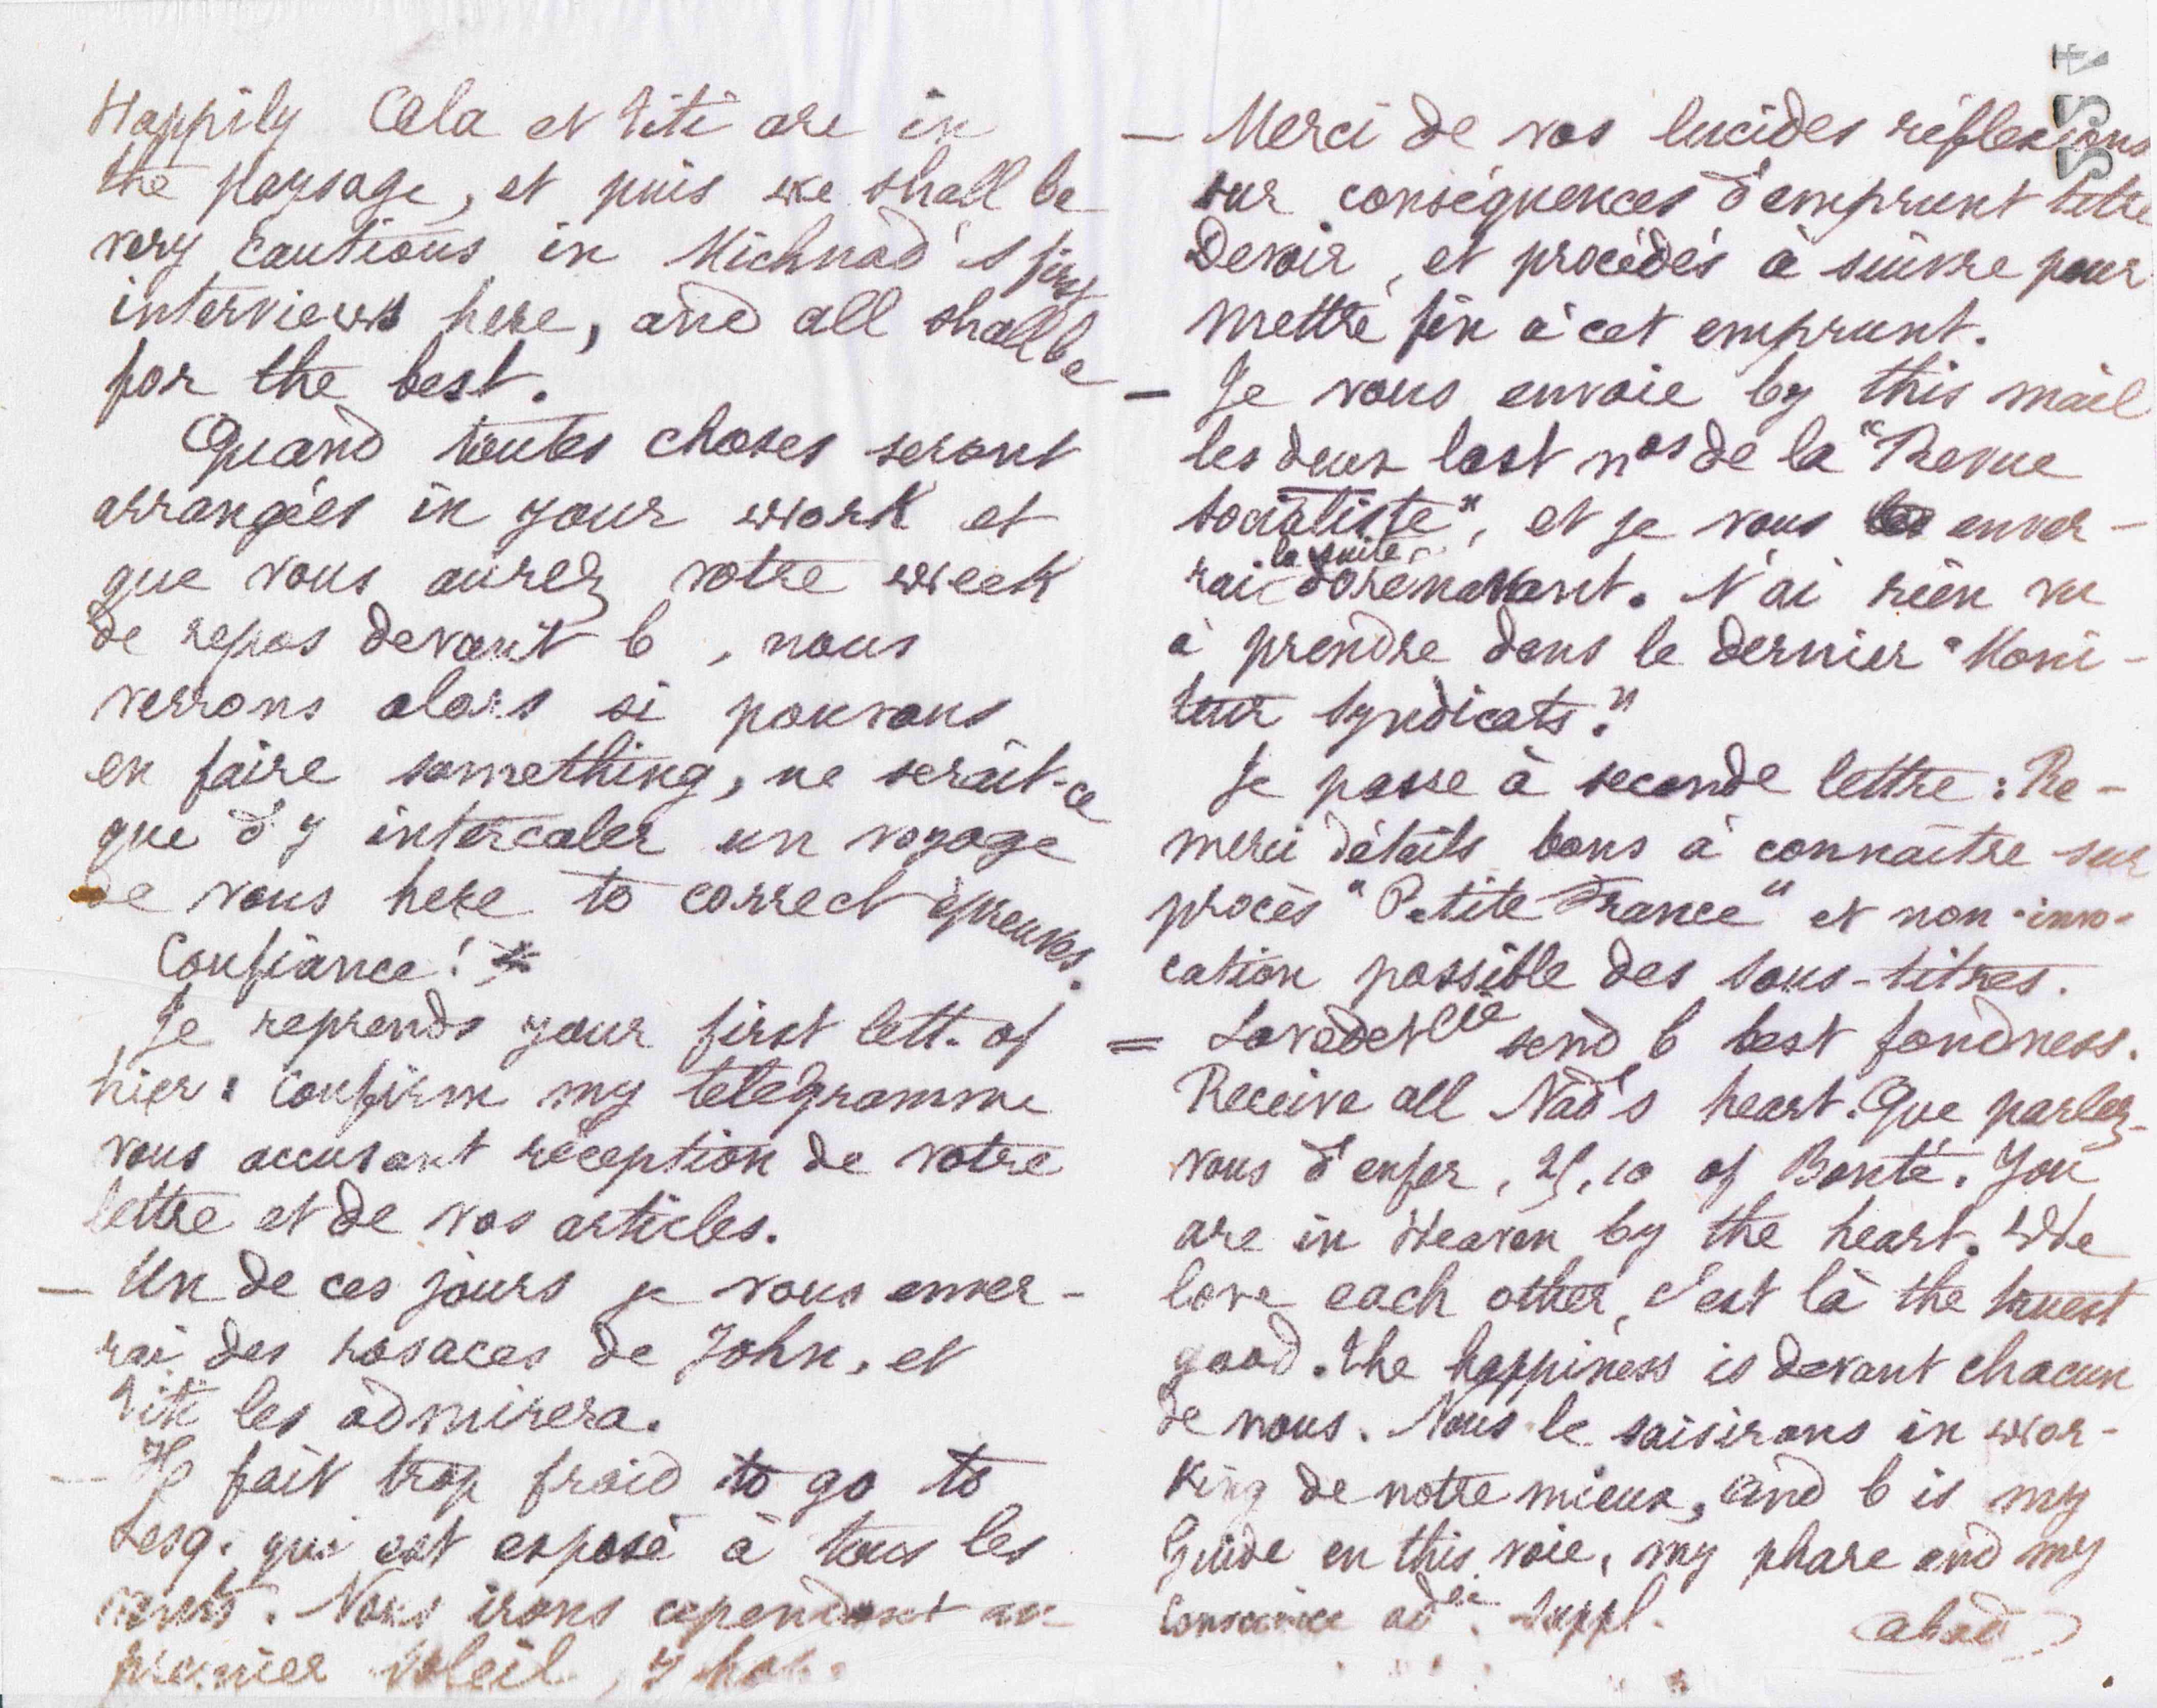 Happily Cela et Titi are in
the paysage, et puis we shall be
very cautious in Michnad's first
interviews here, and all shall be
for the best.
Quand toutes choses seront
arrangées in your work et
que vous aurez votre week
de repos devant b, nous
verrons alors si pouvons
en faire something, ne serait-ce
que d'y intercaler un voyage
de vous here to correct épreuves.
Confiance!
Je reprends your first lett. of
hier: confirm my télégramme
vous accusant réception de votre
lettre et de vos articles.
— Un de ces jours je vous enver-
rai des rosaces de John, et
Titi les admirera.
— Il fait trop froid to go to
Lesq. qui est exposé à tous les
vents. Nous irons cependant au
premier soleil, I
4255
— Merci de vos lucides réflexions
sur conséquences d'emprunt titre
Devoir, et procédés à suivre pour
mettre fin à cet emprunt.
— Je vous envoie by this mail
les deux last nos de la "Revue
socialiste", et je vous enver-
rai la suite dorénavant. N'ai rien vu
à prendre dans le dernier "Moni-
teur Syndicats."
Je passe à seconde lettre: Re-
merci détails bons à connaître sur
procès "Petite France" et non-invo-
cation possible des sous-titres.
= Lovedet Cie send b best fondness.
Receive all Nad's heart. Que parlez-
vous d'enfer, of Bonté. You
are in Heaven by the heart. We
love each other, c'est là the truest
good. The happiness is devant chacun
de nous. Nous le saisirons in wor-
king de notre mieux, and b is my
Guide en this voie, my phare and my
Conscience Suppl.
abad